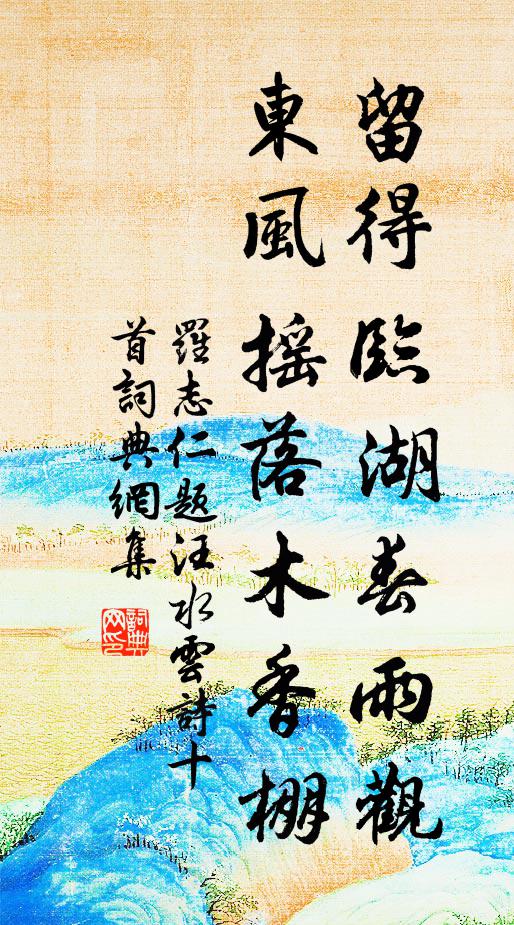 留得臨湖春雨觀
東風搖落木香棚
羅志仁題汪水雲詩十
首詞典網集
詞典
网印